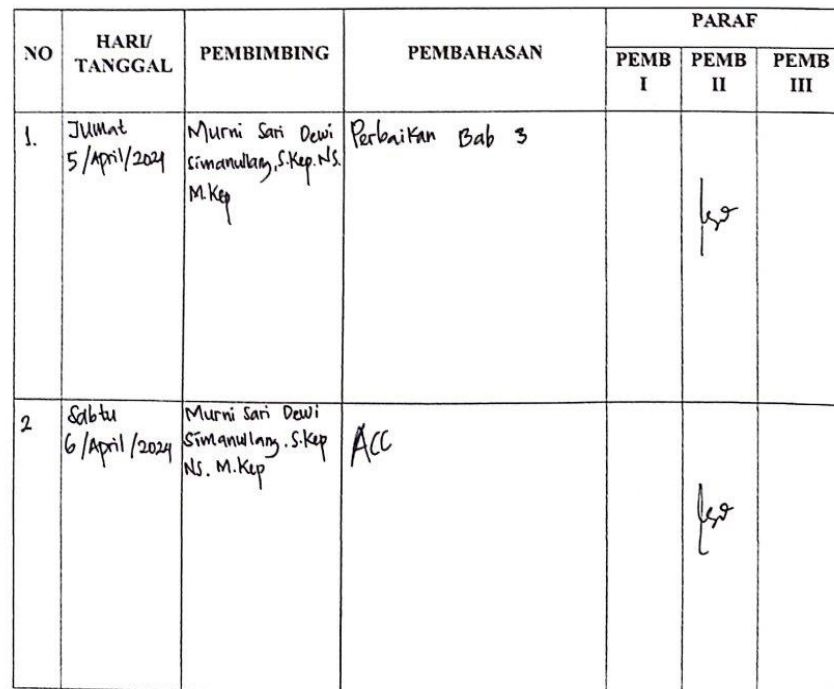 NO
HARI/
TANGGAL
PEMBIMBING
PEMBAHASAN
PARAF
PEMB
I
PEMB
II
PEMB
III
1.
Jumat
5/April/2024
Murni Sari Dewi
Simanullang, S.Kep.NS.
M.Kep
Perbaikan Bab 3
2
Sabtu
6/April/2024
Murni Sari Dewi
Simanullang. S.Kep
NS. M.Kep
ACC